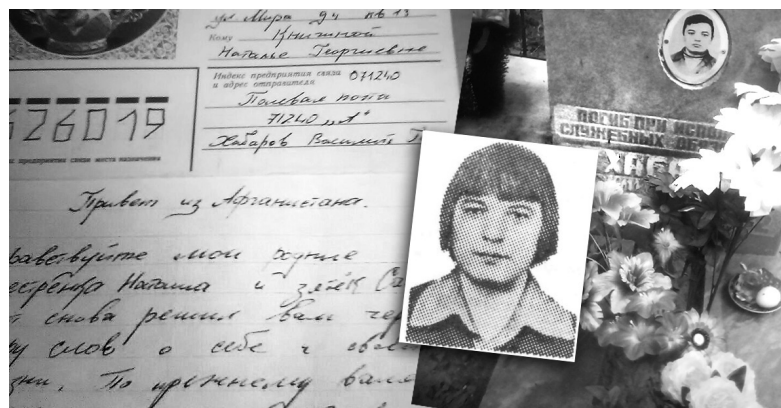 ул Мира 94 кв 13
Кому Книжной
Наталье Георгиевне
Индекс предприятия связи 071240
и адрес отправителя
Полевая почта
71240 „А“
Хабаров Василий Г
26019
предприятия связи места назначения
Привет из Афганистана.
равствуйте мои родные
естренка Наташа и зятёк Са
снова решил вам чер
ру слов о себе и свое
зни. По прежнему
ПОГИБ ПРИ ИСПОЛ
СЛУЖЕБНЫХ ОБ